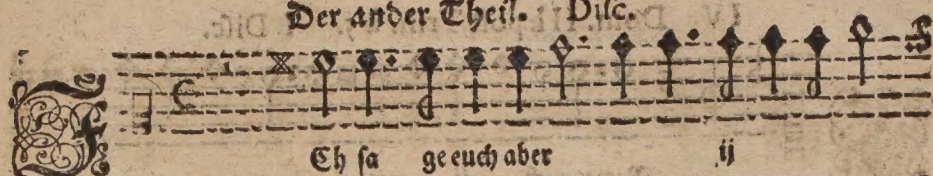 Der ander Theil. Disc.
Ch sa ge euch aber ij